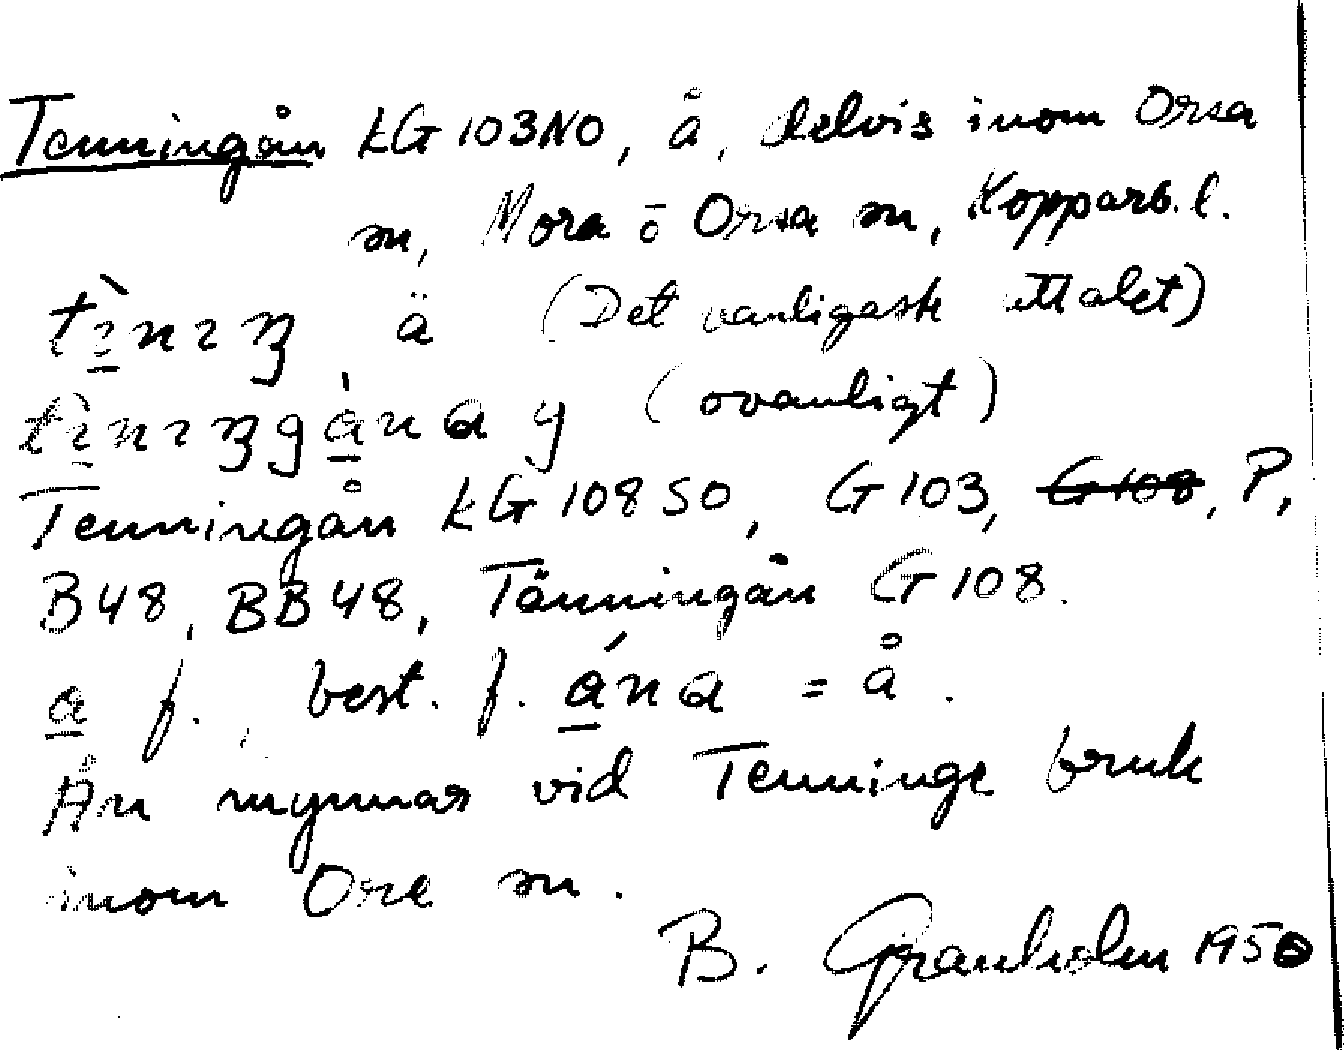 Tenningån kG 103NO, å, delvis inom Orsa
sn, Mora o Orsa sn, Kopparb. l.
ä (Det vanligaste uttalet)
y (ovanligt)
Tenningån kG 108 SO, G 103, G 108, P,
B48, BB48, Tänningån G 108.
a f., best. f. ána = å.
Ån mynnar vid Tenninge bruk
inom Ore sn.
B. Granholm 1950